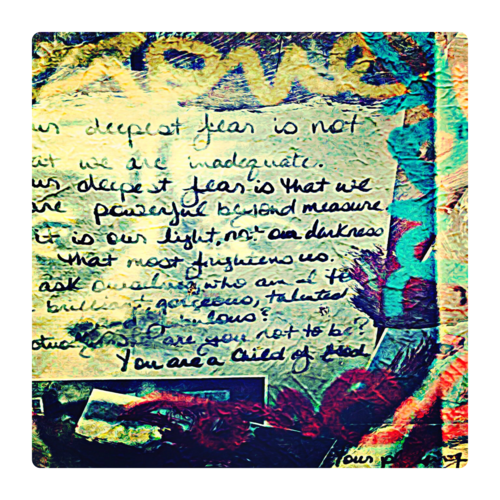 ur deepest fear is not
at we are inadequate.
ur deepest fear is that we
are powerful beyond measure
it is our light, not our darkness
that most frightens us.
ask ourselves, who am I to
brilliant, gorgeous, talented
fabulous?
are you not to be?
You are a child of God
Your